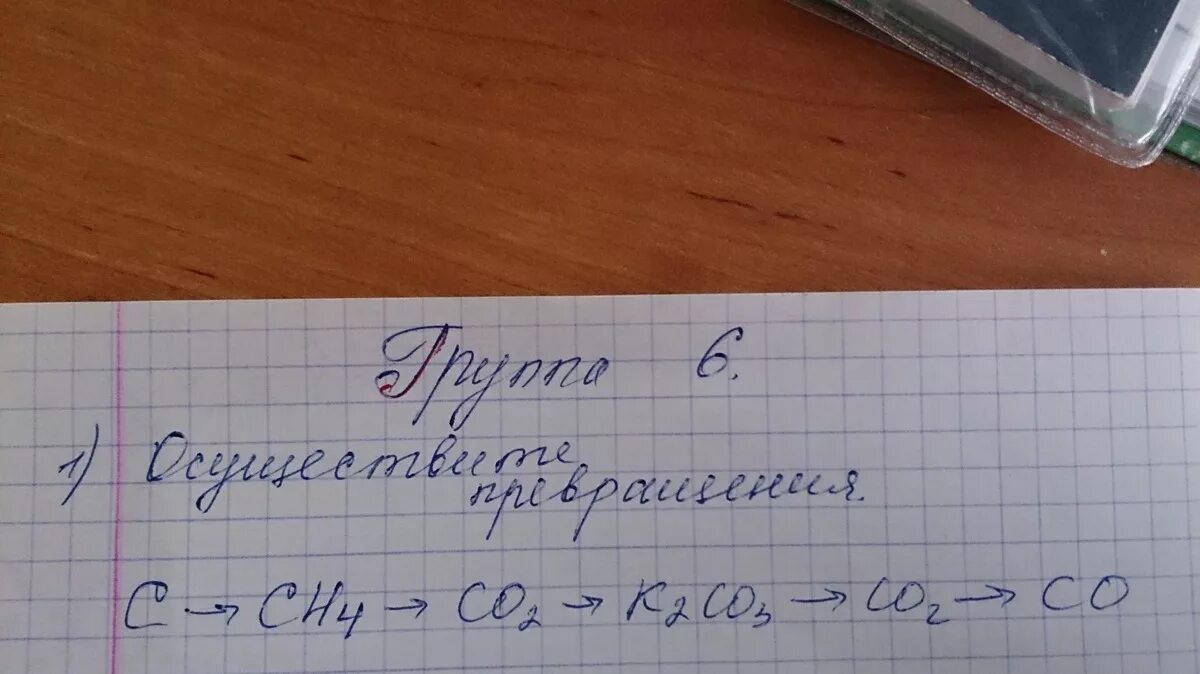 Группа 6.
1) Осуществите
превращения.
C → CH4 → CO2 → K2CO3 → CO2 → CO